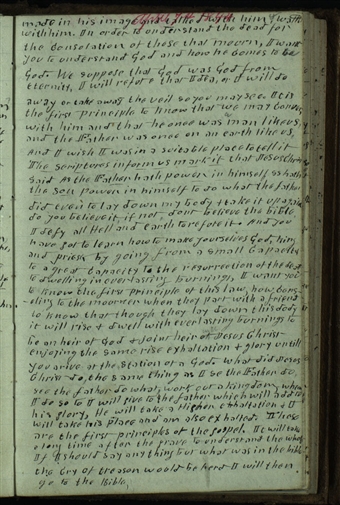 made in his image talk with him & walk
with him. In order to understand the dead for
the consolation of those that mourn, I want
you to understand God and how he comes to be
God. We suppose that God was God from
eternity, I will refute that Idea, or I will do
away or take away the veil so you may see. It is
the first principle to know that we may converse
with him and that he once was man like us,
and the Father was once on an earth like us,
And I wish I was in a suitable place to tell it
The scriptures inform us mark it that Jesus Christ
said As the Father hath power in himself so hath
the son power in himself to do what the father
did even to lay down my body & take it up again
do you believe it if not, dont believe the bible
I defy all Hell and earth to refute it. And you
have got to learn how to make yourselves God, king
and priest, by going from a small capacity
to a great capacity to the resurrection of the dead
to dwelling in everlasting burnings, I want you
to know the first principle of this law, how consol
-ling to the mourner when they part with a friend
to know that though they lay down this body
it will rise & dwell with everlasting burnings to
be an heir of God & joint heir of Jesus Christ
enjoying the same rise exhaltation & glory untill
you arive at the station of a God. What did Jesus
Christ do, the same thing as I se the Father do,
see the father do what, work out a kingdom, when
I do so to I will give to the father which will add to
his glory, He will take a Higher exhaltation & I
will take his place and am also exhalted. These
are the first principles of the gospel. It will take
a long time after the grave to understand the whole
If I should say any thing but what was in the bible
the cry of treason would be herd I will then
go to the Bible,